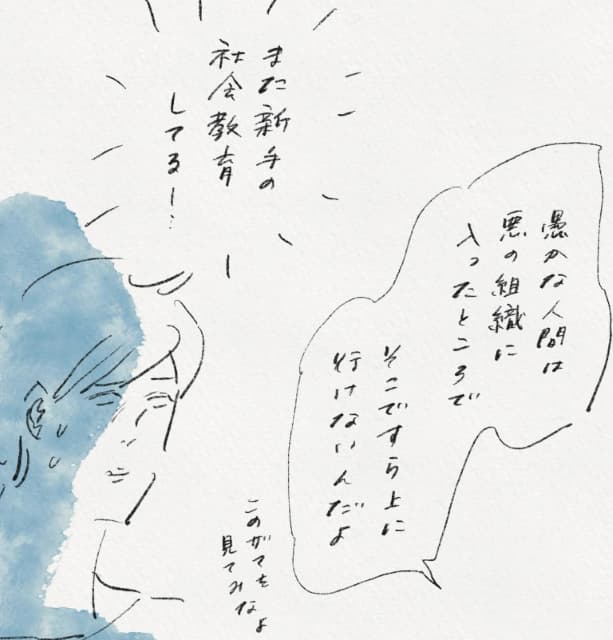 愚かな人間は
悪の組織に
入ったところで
そこですら上に
行けないんだよ
また新手の
社会教育
してるー…
このザマを
見てみなよ